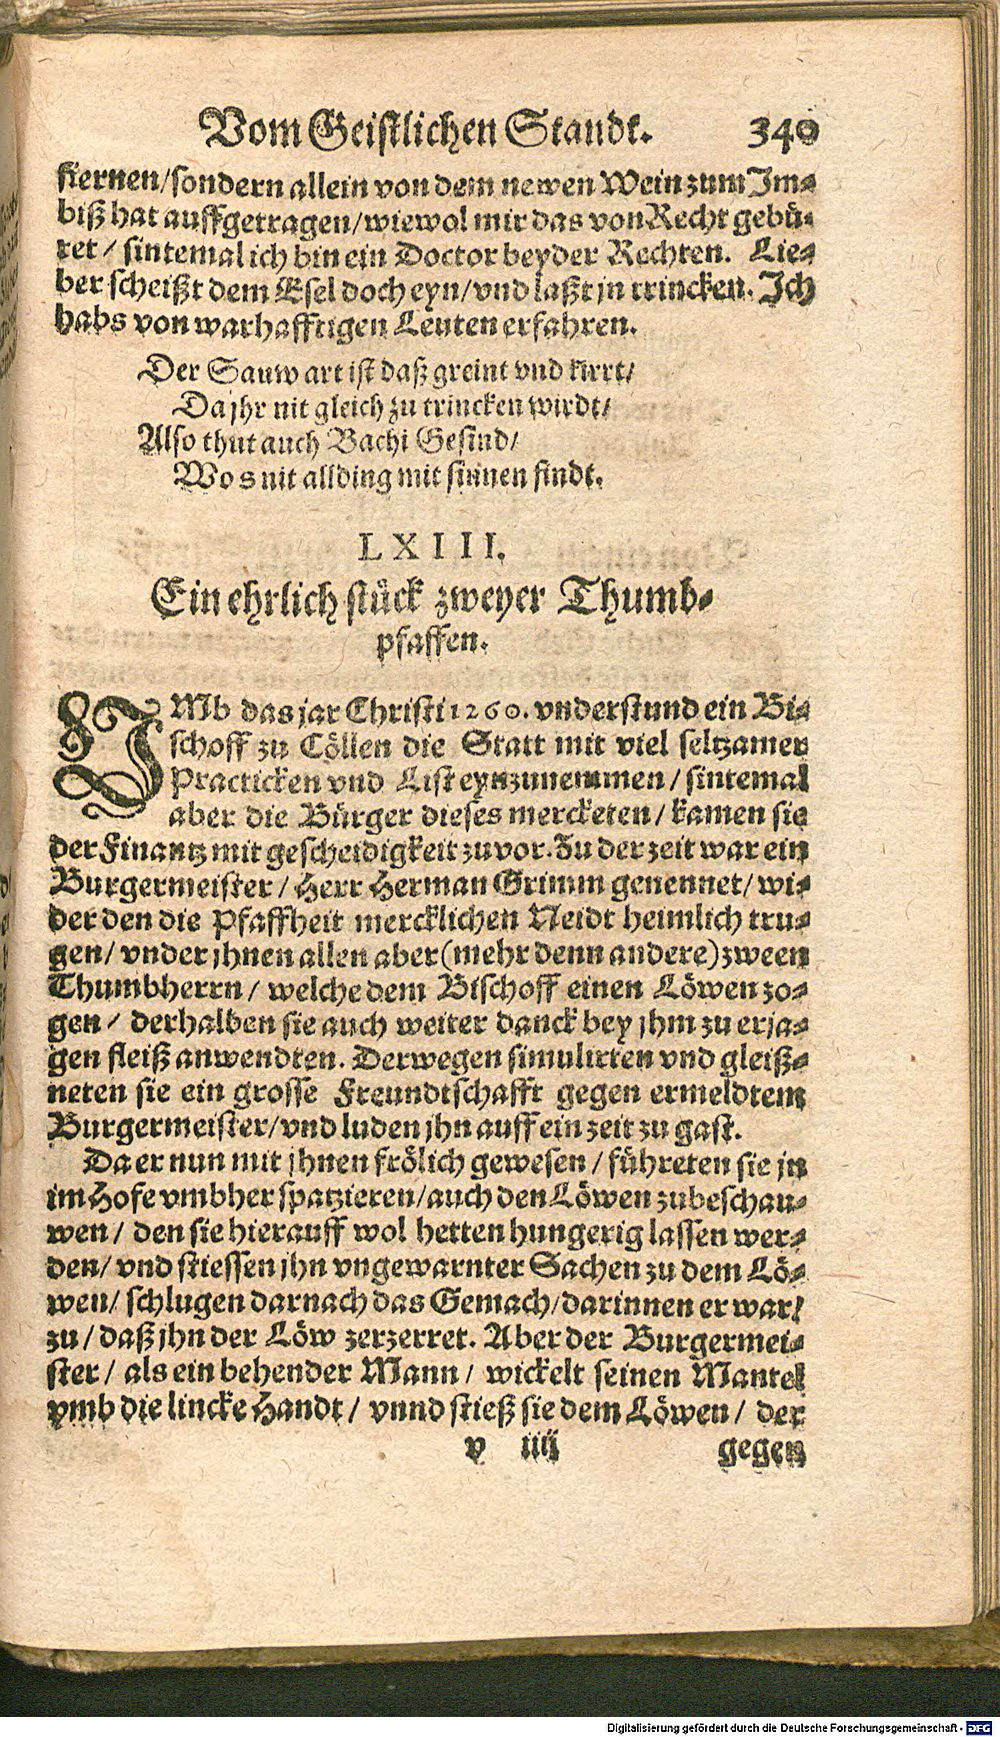 Vom Geistlichen Standt. 340
fiernen/sondern allein von dem newen Wein zum Im-
biß hat auffgetragen/wiewol mir das von Recht gebü-
ret/ sintemal ich bin ein Doctor beyder Rechten. Lie-
ber scheißt dem Esel doch eyn/vnd laßt jn trincken. Ich
habs von warhafftigen Leuten erfahren.
Der Sauw art ist daß greint vnd kirrt/
Da jhr nit gleich zu trincken wirdt/
Also thut auch Bachi Gesind/
Wo s nit allding mit sinnen findt.
LXIII.
Ein ehrlich stück zweyer Thumb-
pfaffen.
IMb das jar Christi 1260. vnderstund ein Bi-
schoff zu Cöllen die Statt mit viel seltzamen
Practicken vnd List eynzunemmen/ sintemal
aber die Bürger dieses mercketen/ kamen sie
der Finantz mit gescheidigkeit zuvor. Zu der zeit war ein
Burgermeister/ Herr Herman Grimm genennet/ wi-
der den die Pfaffheit mercklichen Neidt heimlich tru-
gen/ vnder jhnen allen aber (mehr denn andere) zween
Thumbherrn/ welche dem Bischoff einen Löwen zo-
gen/ derhalben sie auch weiter danck bey jhm zu erja-
gen fleiß anwendten. Derwegen simulirten vnd gleiß-
neten sie ein grosse Freundtschafft gegen ermeldtem
Burgermeister/vnd luden jhn auff ein zeit zu gast.
Da er nun mit jhnen frölich gewesen/ führeten sie jn
im Hofe vmbher spatzieren/auch den Löwen zubeschau-
wen/ den sie hierauff wol hetten hungerig lassen wer-
den/ vnd stiessen jhn vngewarnter Sachen zu dem Lö-
wen/ schlugen darnach das Gemach/darinnen er war/
zu/ daß jhn der Löw zerzerret. Aber der Burgermei-
ster/ als ein behender Mann/ wickelt seinen Mantel
vmb die lincke Handt/ vnnd stieß sie dem Löwen/ der
v iiij gegen
Digitalisierung gefördert durch die Deutsche Forschungsgemeinschaft - DFG